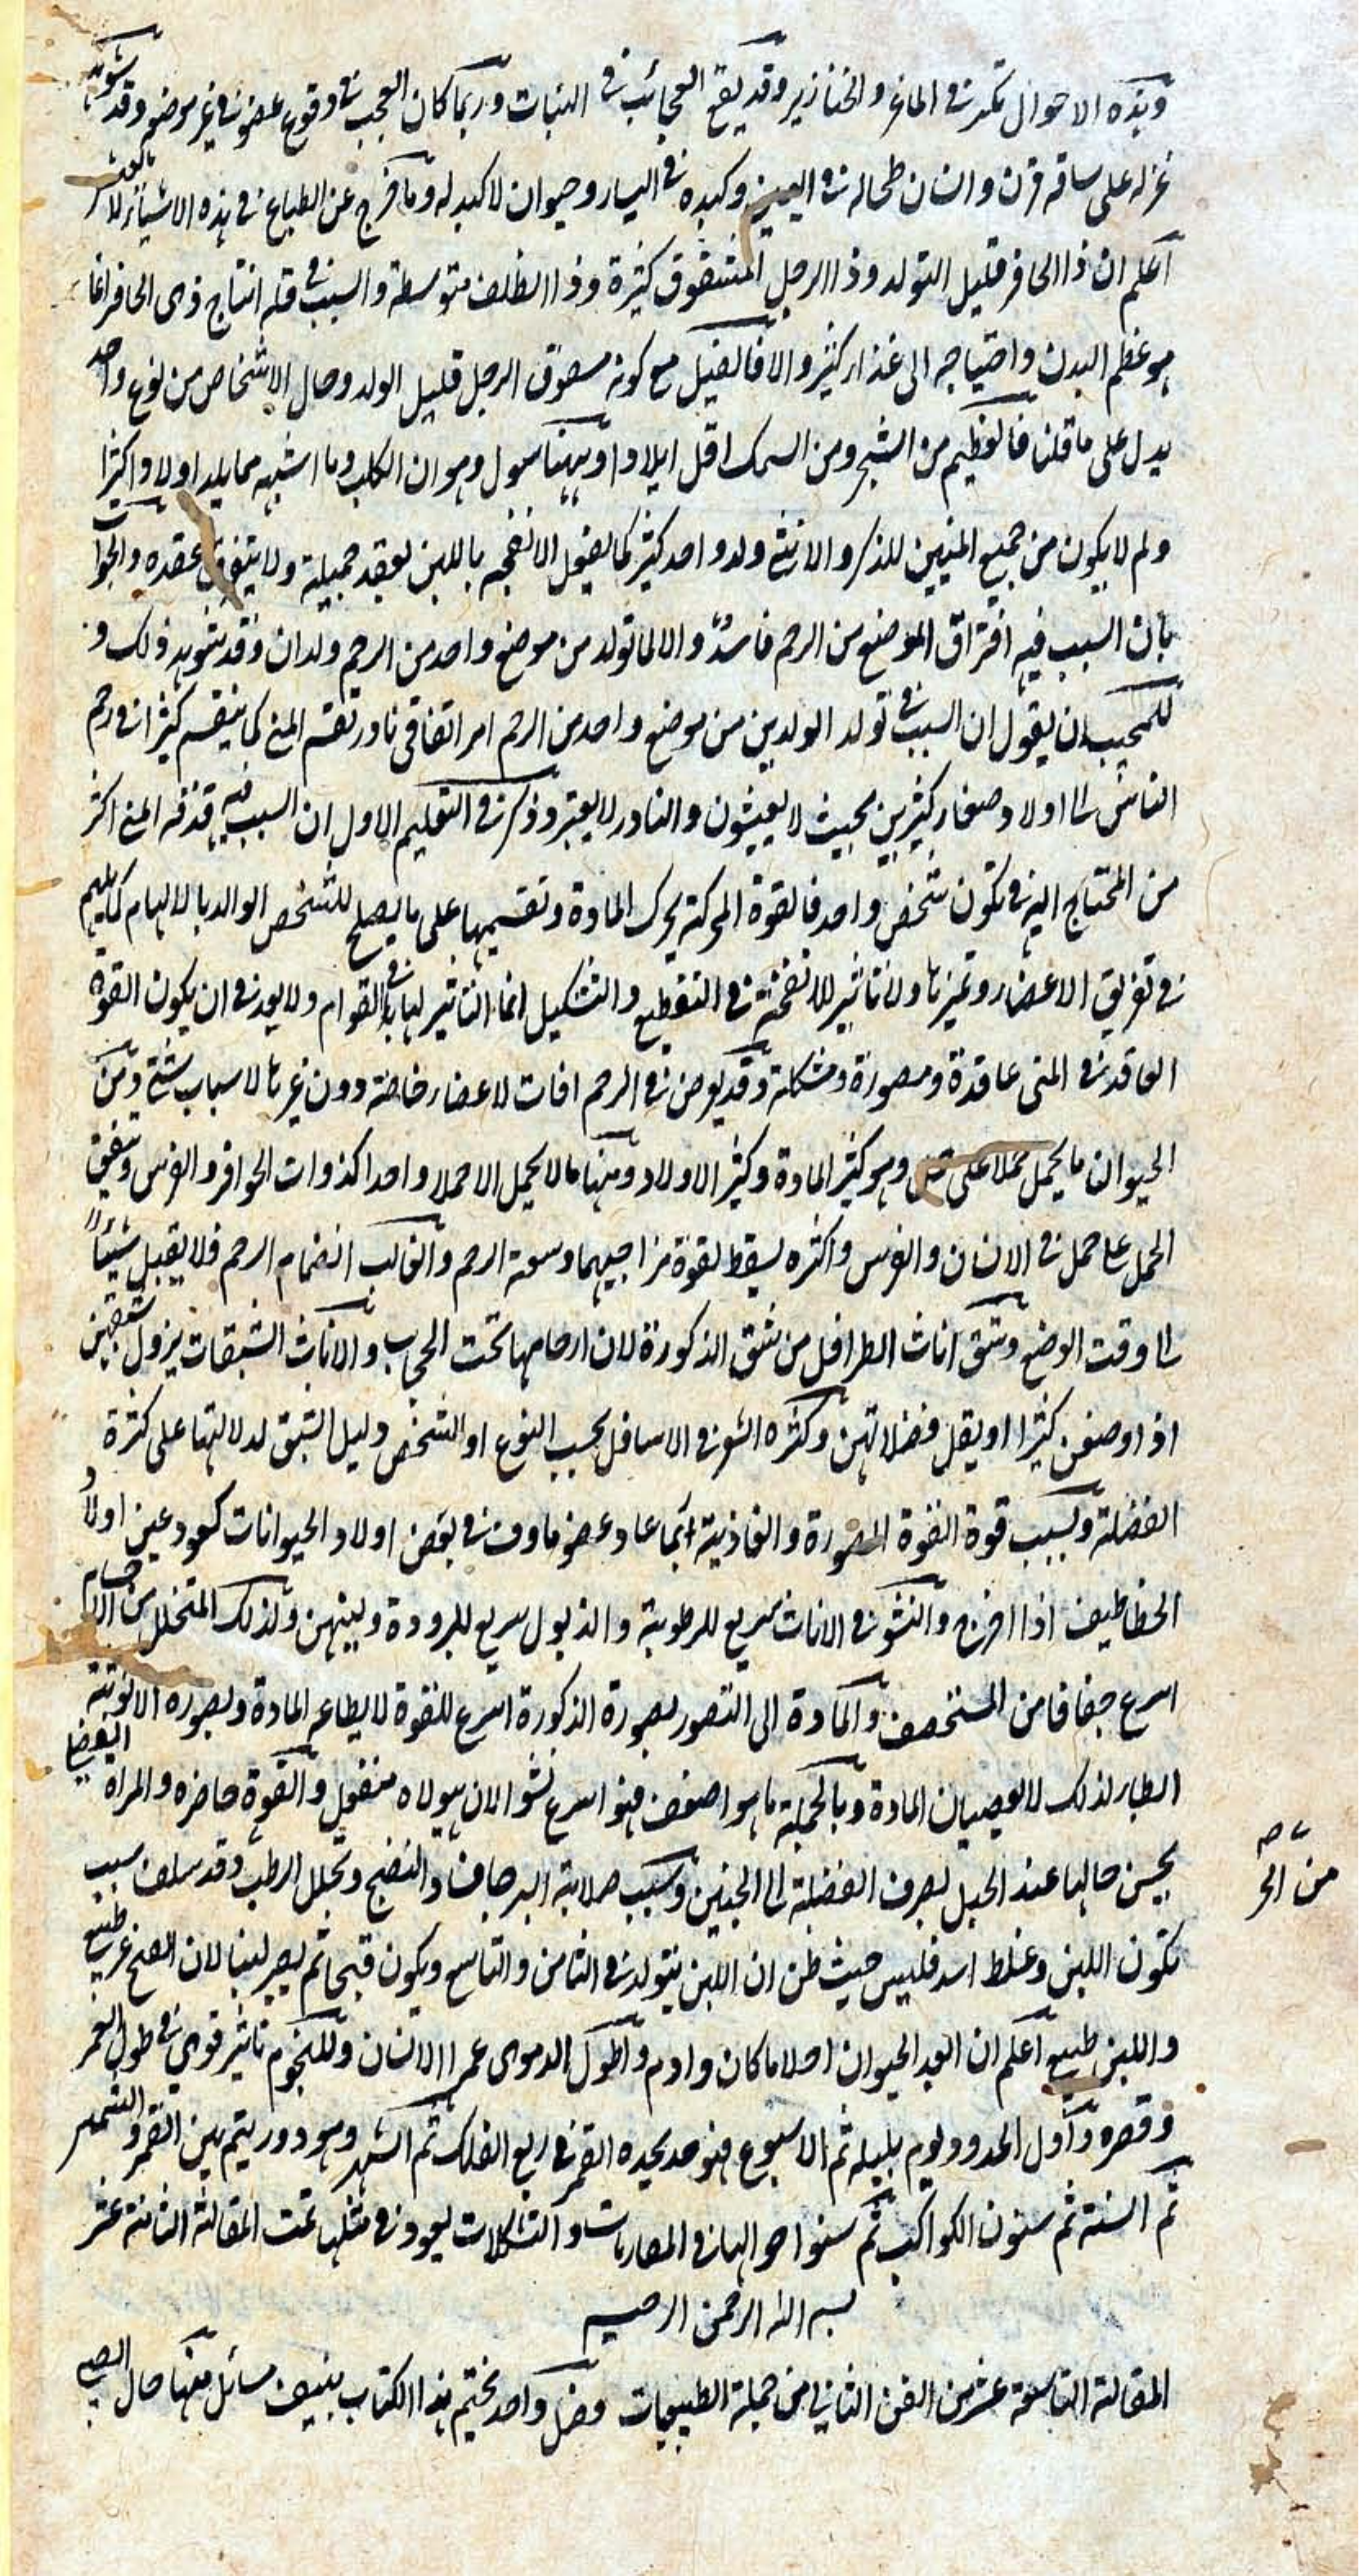 وهذه الاحوال تكثر في الماعز والخنازير وقد يقع العجائب في النبات وربما كان العجب في وقوع عضو في غير موضعه وقد شوهد
غزله على ساقه قرن وانسان طحاله في اليمين وكبده في اليسار وحيوان لا كبد له وما خرج عن الطباع في هذه الاشياء لا يعيش
اعلم ان ذا الحافر قليل التولد وذا الرجل المتشقوق كثيرة وذا الظلف متوسطة والسبب في قلة انتاج ذى الحافر انما
هو عظم البدن واحتياجه الى غذاء كثير والا فالفيل مع كونه مسقوق الرجل قليل الولد وحال الاشخاص من نوع واحد
يدل على ما قلنا فالعظيم من الشجر ومن السمك اقل ايلادا وههنا سول وهو ان الكلب وما اشبهه مما يلد اولادا كثيرا
ولم لا يكون من جميع المنيين للذكر والانثى ولد واحد كثير كما يفعل الانفحه باللبن يعقد جميله ولا يتفرق بعقده والجواب
بان السبب فيه افتراق المواضع من الرحم فاسد والا لما تولد من موضع واحد من الرحم ولدان وقد شوهد ذلك و
للمجيب ان يقول ان السبب في تولد الولدين من موضع واحد من الرحم امر اتفاقى نادر تقسم المنى كما ينقسم كثيرا في رحم
الناس الى اولاد صغار كثيرين بحيث لا يعيشون والنادر لا يعتبر وذكر في التعليم الاول ان السبب فيه قذفه المنى اكثر
من المحتاج اليه في تكون شخص واحد فالقوة المحركة يحرك المادة وتقسيمها على ما يصلح للشخص الوالد بالالهام كما يلهم
في تفريق الاعضاء وتميزها ولا تاثير للانفحة في التقطيع والتشكيل انما التاثير لها في القوام ولا يبعد في ان يكون القوة
العاقد في المنى عاقدة ومصورة ومشكلة وقد يعرض في الرحم افات لاعضاء خاصة دون غيرها لاسباب شتى ومن
الحيوان ما يحمل حملا على حمل وهو كثير المادة وكثير الاولاد ومنها ما لا يحمل الا حملا واحدا كذوات الحوافر والفرس ويتفق
الحمل على حمل في الانسان والفرس واكثره يسقط لقوة مزاجيهما وسعة الرحم والغالب انضمام الرحم فلا يقبل شيئا
الى وقت الوضع وشق اناث الطرافل من شق الذكورة لان ارحامها تحت الحجاب والاناث الشبقات يزول شبقهن
اذا وضعن كثيرا او يقل فضلاتهن وكثرة الشعر في الاسافل بحسب النوع او الشخص دليل الشبق لدلالتها على كثرة
الفضلة وبسبب قوة القوة المصورة والغاذية انما عاد عضو ماوف في بعض اولاد الحيوانات كعود عين اولاد
الخطاطيف اذا افرخ والنشو في الاناث سريع للرطوبة والذبول سريع للبرودة ولينهن ولذلك المتخلل من الاجسام
اسرع جفافا من المستحصف والمادة الى التصور بصورة الذكورة اسرع للقوة لا يطاعه المادة وبصورة الانوثة
ابطاء لذلك لا لعصيان المادة وبالجملة ما هو اضعف فهو اسرع نشوا لان هيولاه منفعل والقوة حاضره والمراة البيضا
يحسن حالها عند الحبل لصرف الفضلة الى الجنين وسبب صلابة البدن جاف والنضج وتحلل الرطب وقد سلف سبب
تكون اللبن وغلط اسدقليس حيث ظن ان اللبن يتولد في الثامن والتاسع ويكون قيحا ثم يصير لبنا لان القيح غير طبيعى
واللبن طبيع اعلم ان البعد الحيوان املا ما كان وادوم واطول الدموى عمرا الانسان وللنجوم تاثير قوى في طول العمر
وقصره واول الحدود يوم بليله ثم الاسبوع فهو حد يحده القمر في ربع الفلك ثم الشهر وهو دور يتم بين القمر والشمس
ثم السنة ثم سنون الكواكب ثم سنوا احوالها في المعاربات والتشكلات يعود في مثلها تمت المقالة الثامنة عشر
بسم الله الرحمن الرحيم
المقالة التاسعة عشر من الفن الثاني من جملة الطبيعيات وفصل واحد يختم هذا الكتاب بنيف مسائل منها حال الصبى
من الحر
صح